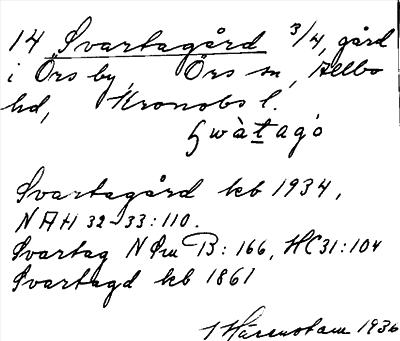 14 Svartagård 3/4, gård
i Örs by, Örs sn, Allbo
hd, Kronobs l.
Svartagård kb 1934,
NAH 32-33:110.
Svartag N Sm B: 166, HC31:104
Svartagd kb 1861
1936